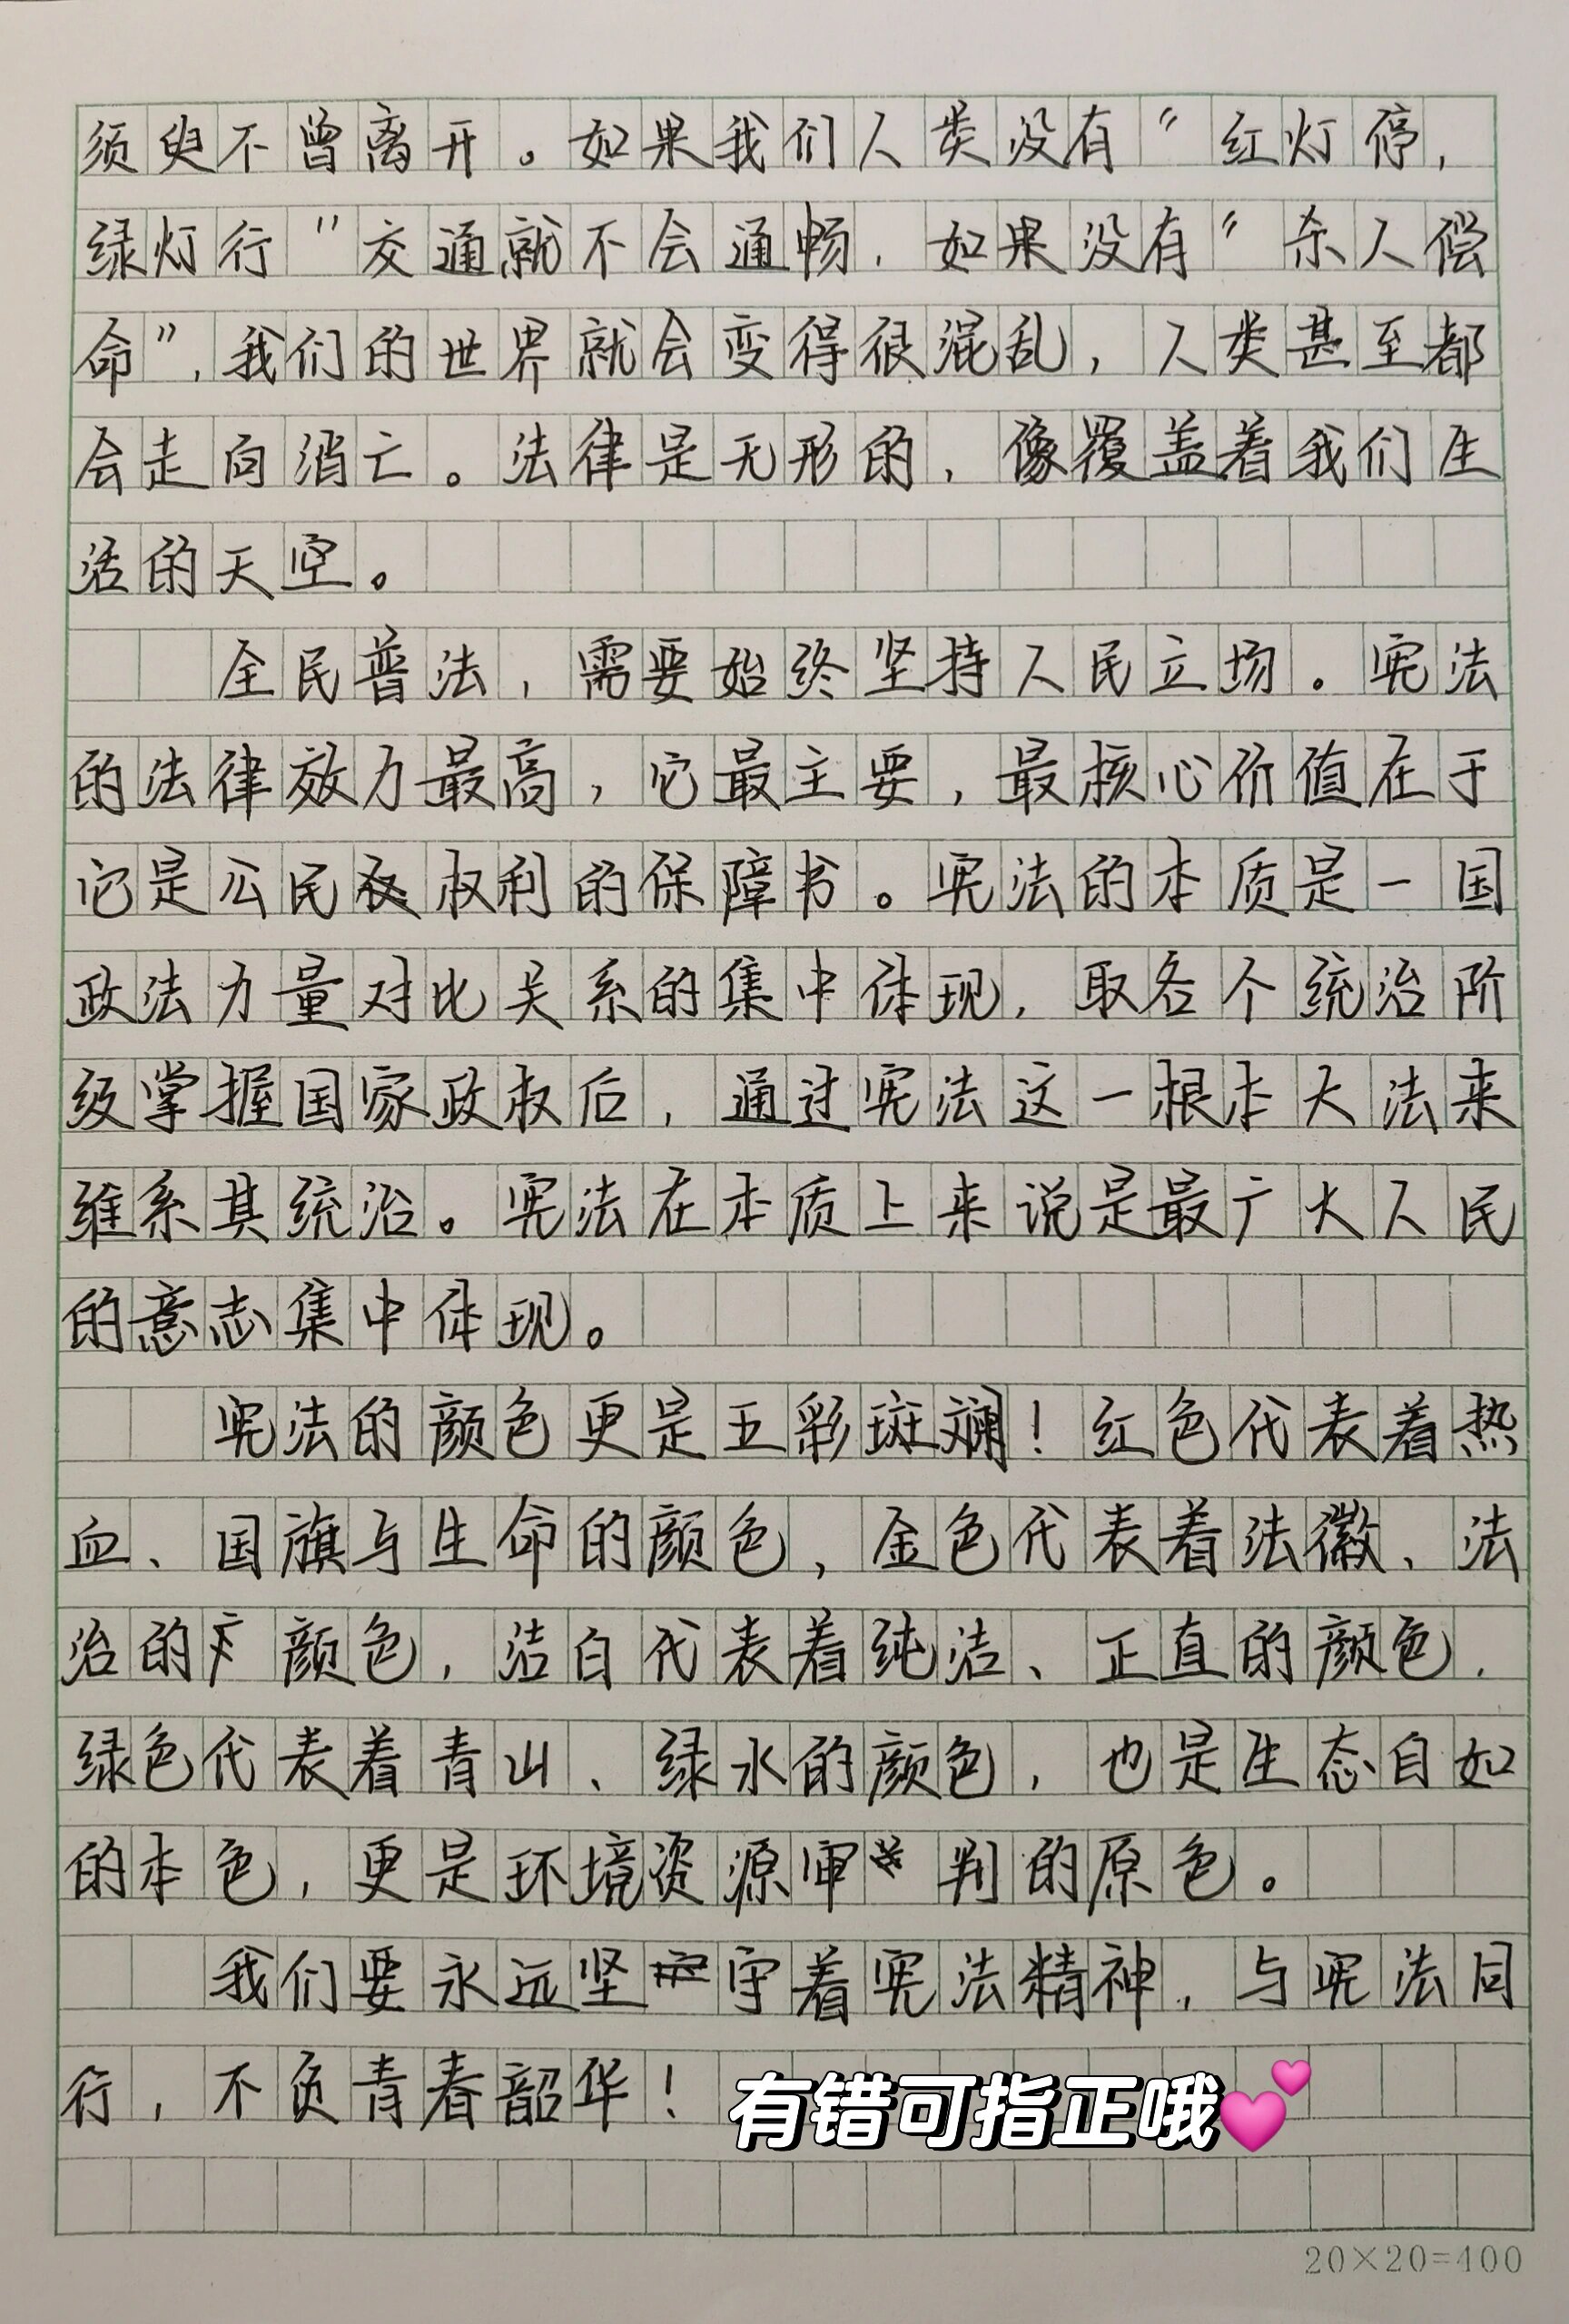 须臾不曾离开。如果我们人类没有“红灯停，
绿灯行”交通就不会通畅，如果没有“杀人偿
命”，我们的世界就会变得很混乱，人类甚至都
会走向消亡。法律是无形的，像覆盖着我们生
活的天空。
全民普法，需要始终坚持人民立场。宪法
的法律效力最高，它最主要，最核心价值在于
它是公民权利的保障书。宪法的本质是一国
政法力量对比关系的集中体现，取各个统治阶
级掌握国家政权后，通过宪法这一根本大法来
维系其统治。宪法在本质上来说是最广大人民
的意志集中体现。
宪法的颜色更是五彩斑斓！红色代表着热
血、国旗与生命的颜色，金色代表着法徽、法
治的颜色，洁白代表着纯洁、正直的颜色，
绿色代表着青山、绿水的颜色，也是生态自如
的本色，更是环境资源审判的原色。
我们要永远坚守着宪法精神，与宪法同
行，不负青春韶华！
有错可指正哦💕
20×20=400